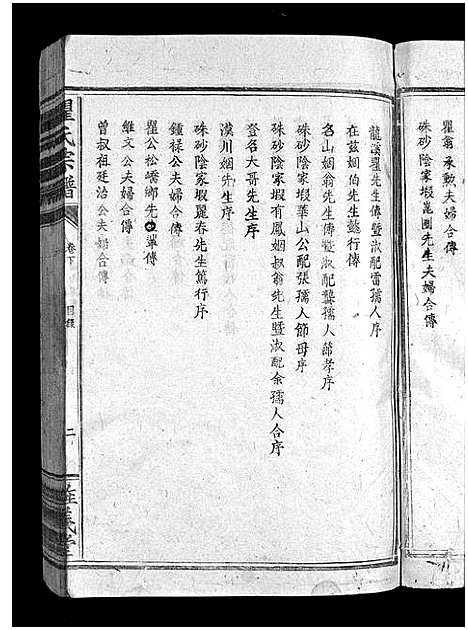 瞿翁承勲夫婦合傳
硃砂陰家塅崑圃先生夫婦合傳
龍溪瞿先生傳暨淑配雷孺人序
在茲姻伯先生懿行傳
名山姻翁先生傳暨淑配龔孺人節孝序
硃砂陰家塅華山公配張孺人節母序
硃砂陰家塅有鳳姻叔翁先生暨淑配余孺人合序
登名大哥先生序
漢川姻先生序
硃砂陰家塅麗春先生篤行序
鍾祿公夫婦合傳
瞿公松嶠鄉先輩傳
維文公夫婦合傳
曾叔祖廷治公夫婦合傳
瞿氏宗譜
卷下
目錄
二